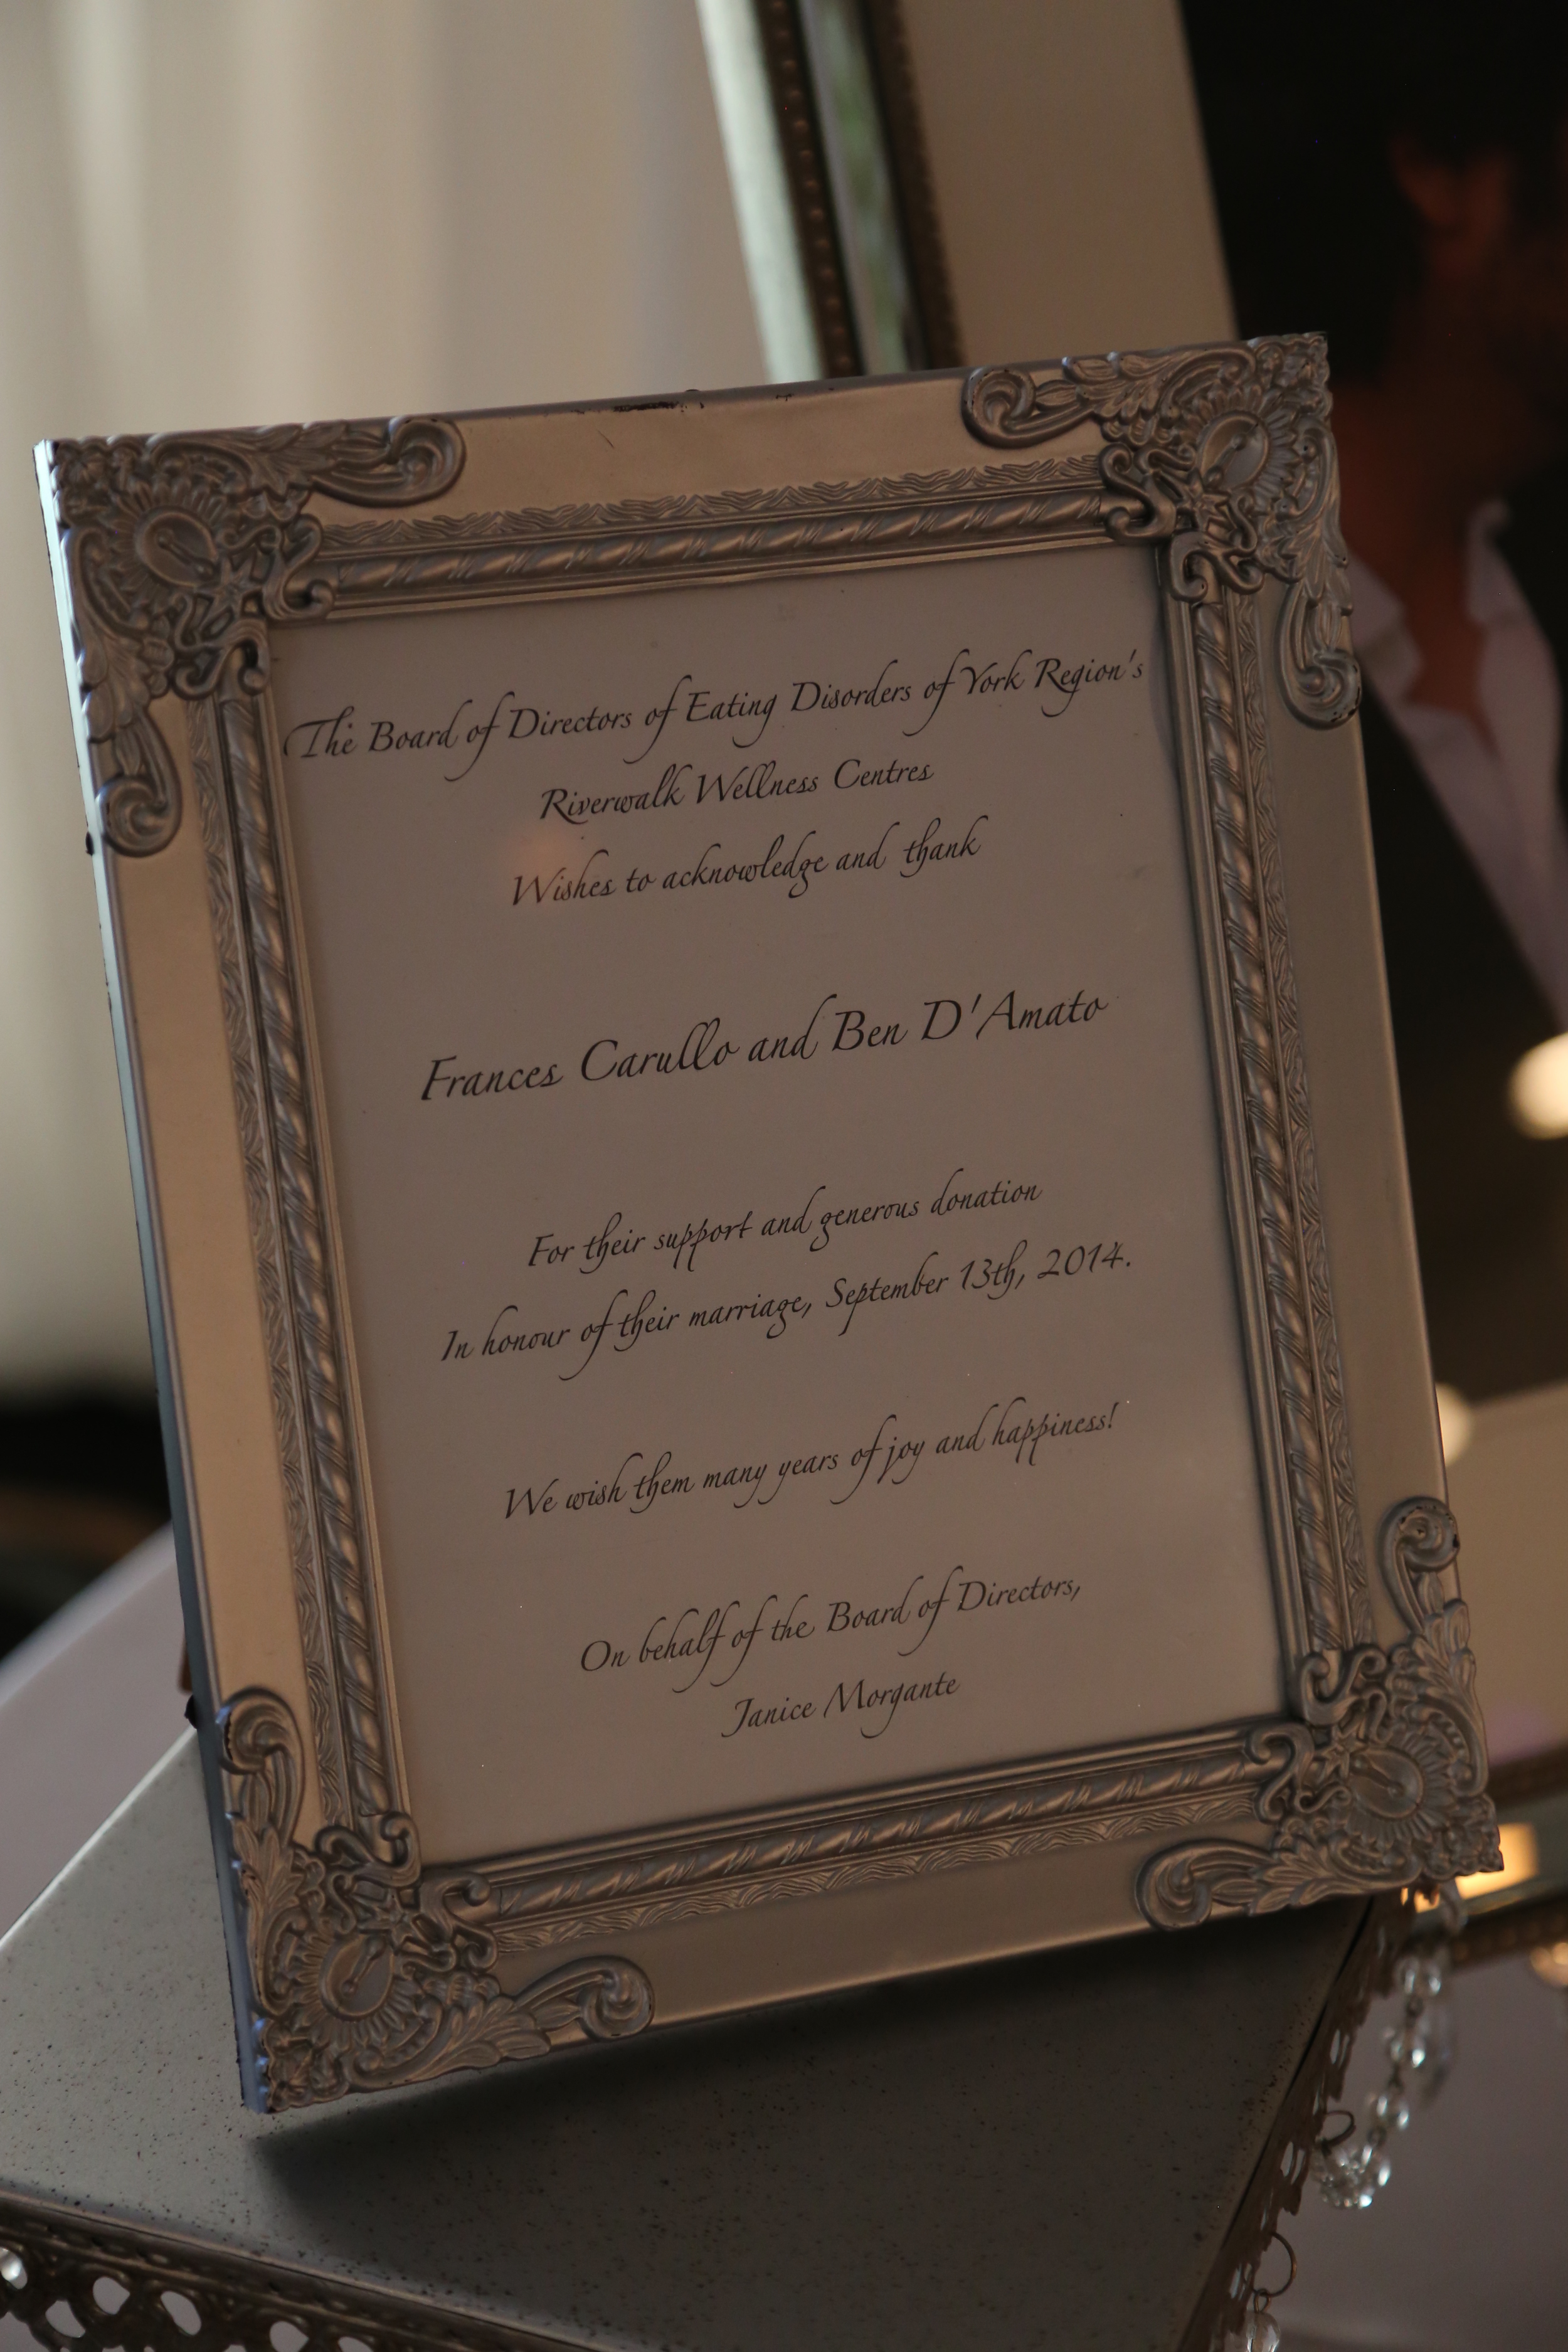 The Board of Directors of Eating Disorders of York Region's
Riverwalk Wellness Centres
Wishes to acknowledge and thank
Frances Carullo and Ben D'Amato
For their support and generous donation
In honour of their marriage, September 13th, 2014.
We wish them many years of joy and happiness!
On behalf of the Board of Directors,
Janice Morgante